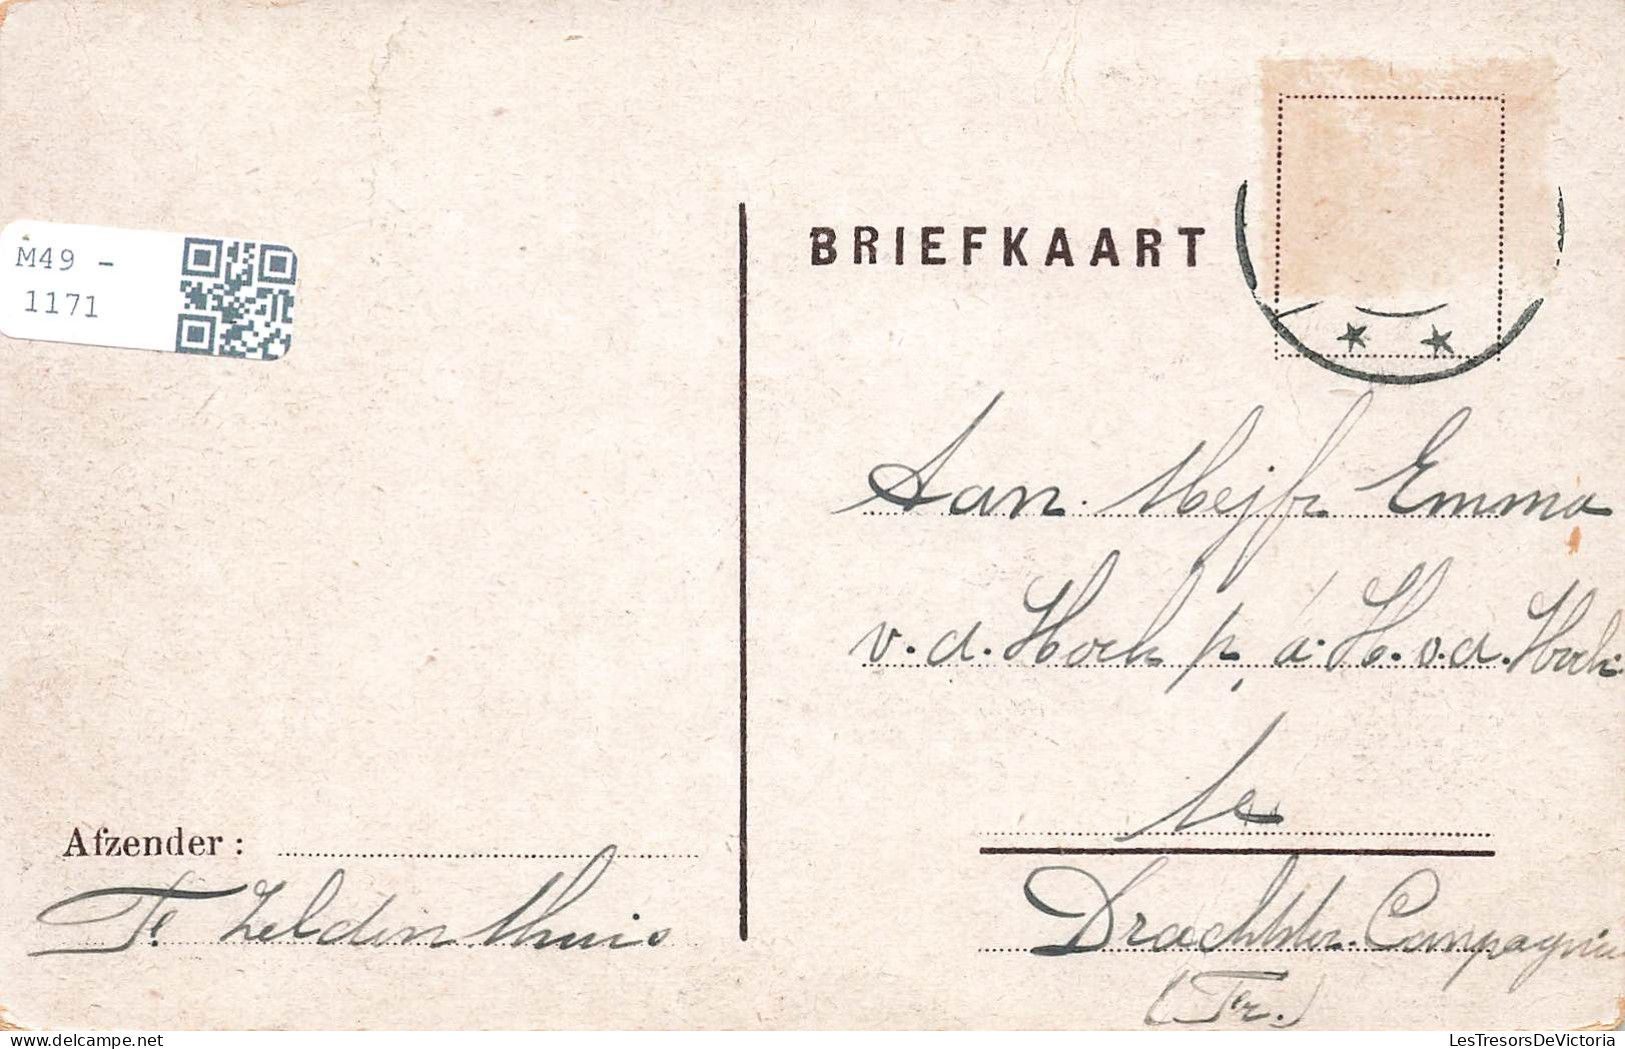 M49 -
1171
BRIEFKAART
Aan Mejfr Emma
v. d. Hoek p. a. H. v. d. Hoek
te
Drachtster Compagnie
(Fr.)
Afzender :
F. Zeldenthuis
LesTresorsDeVictoria